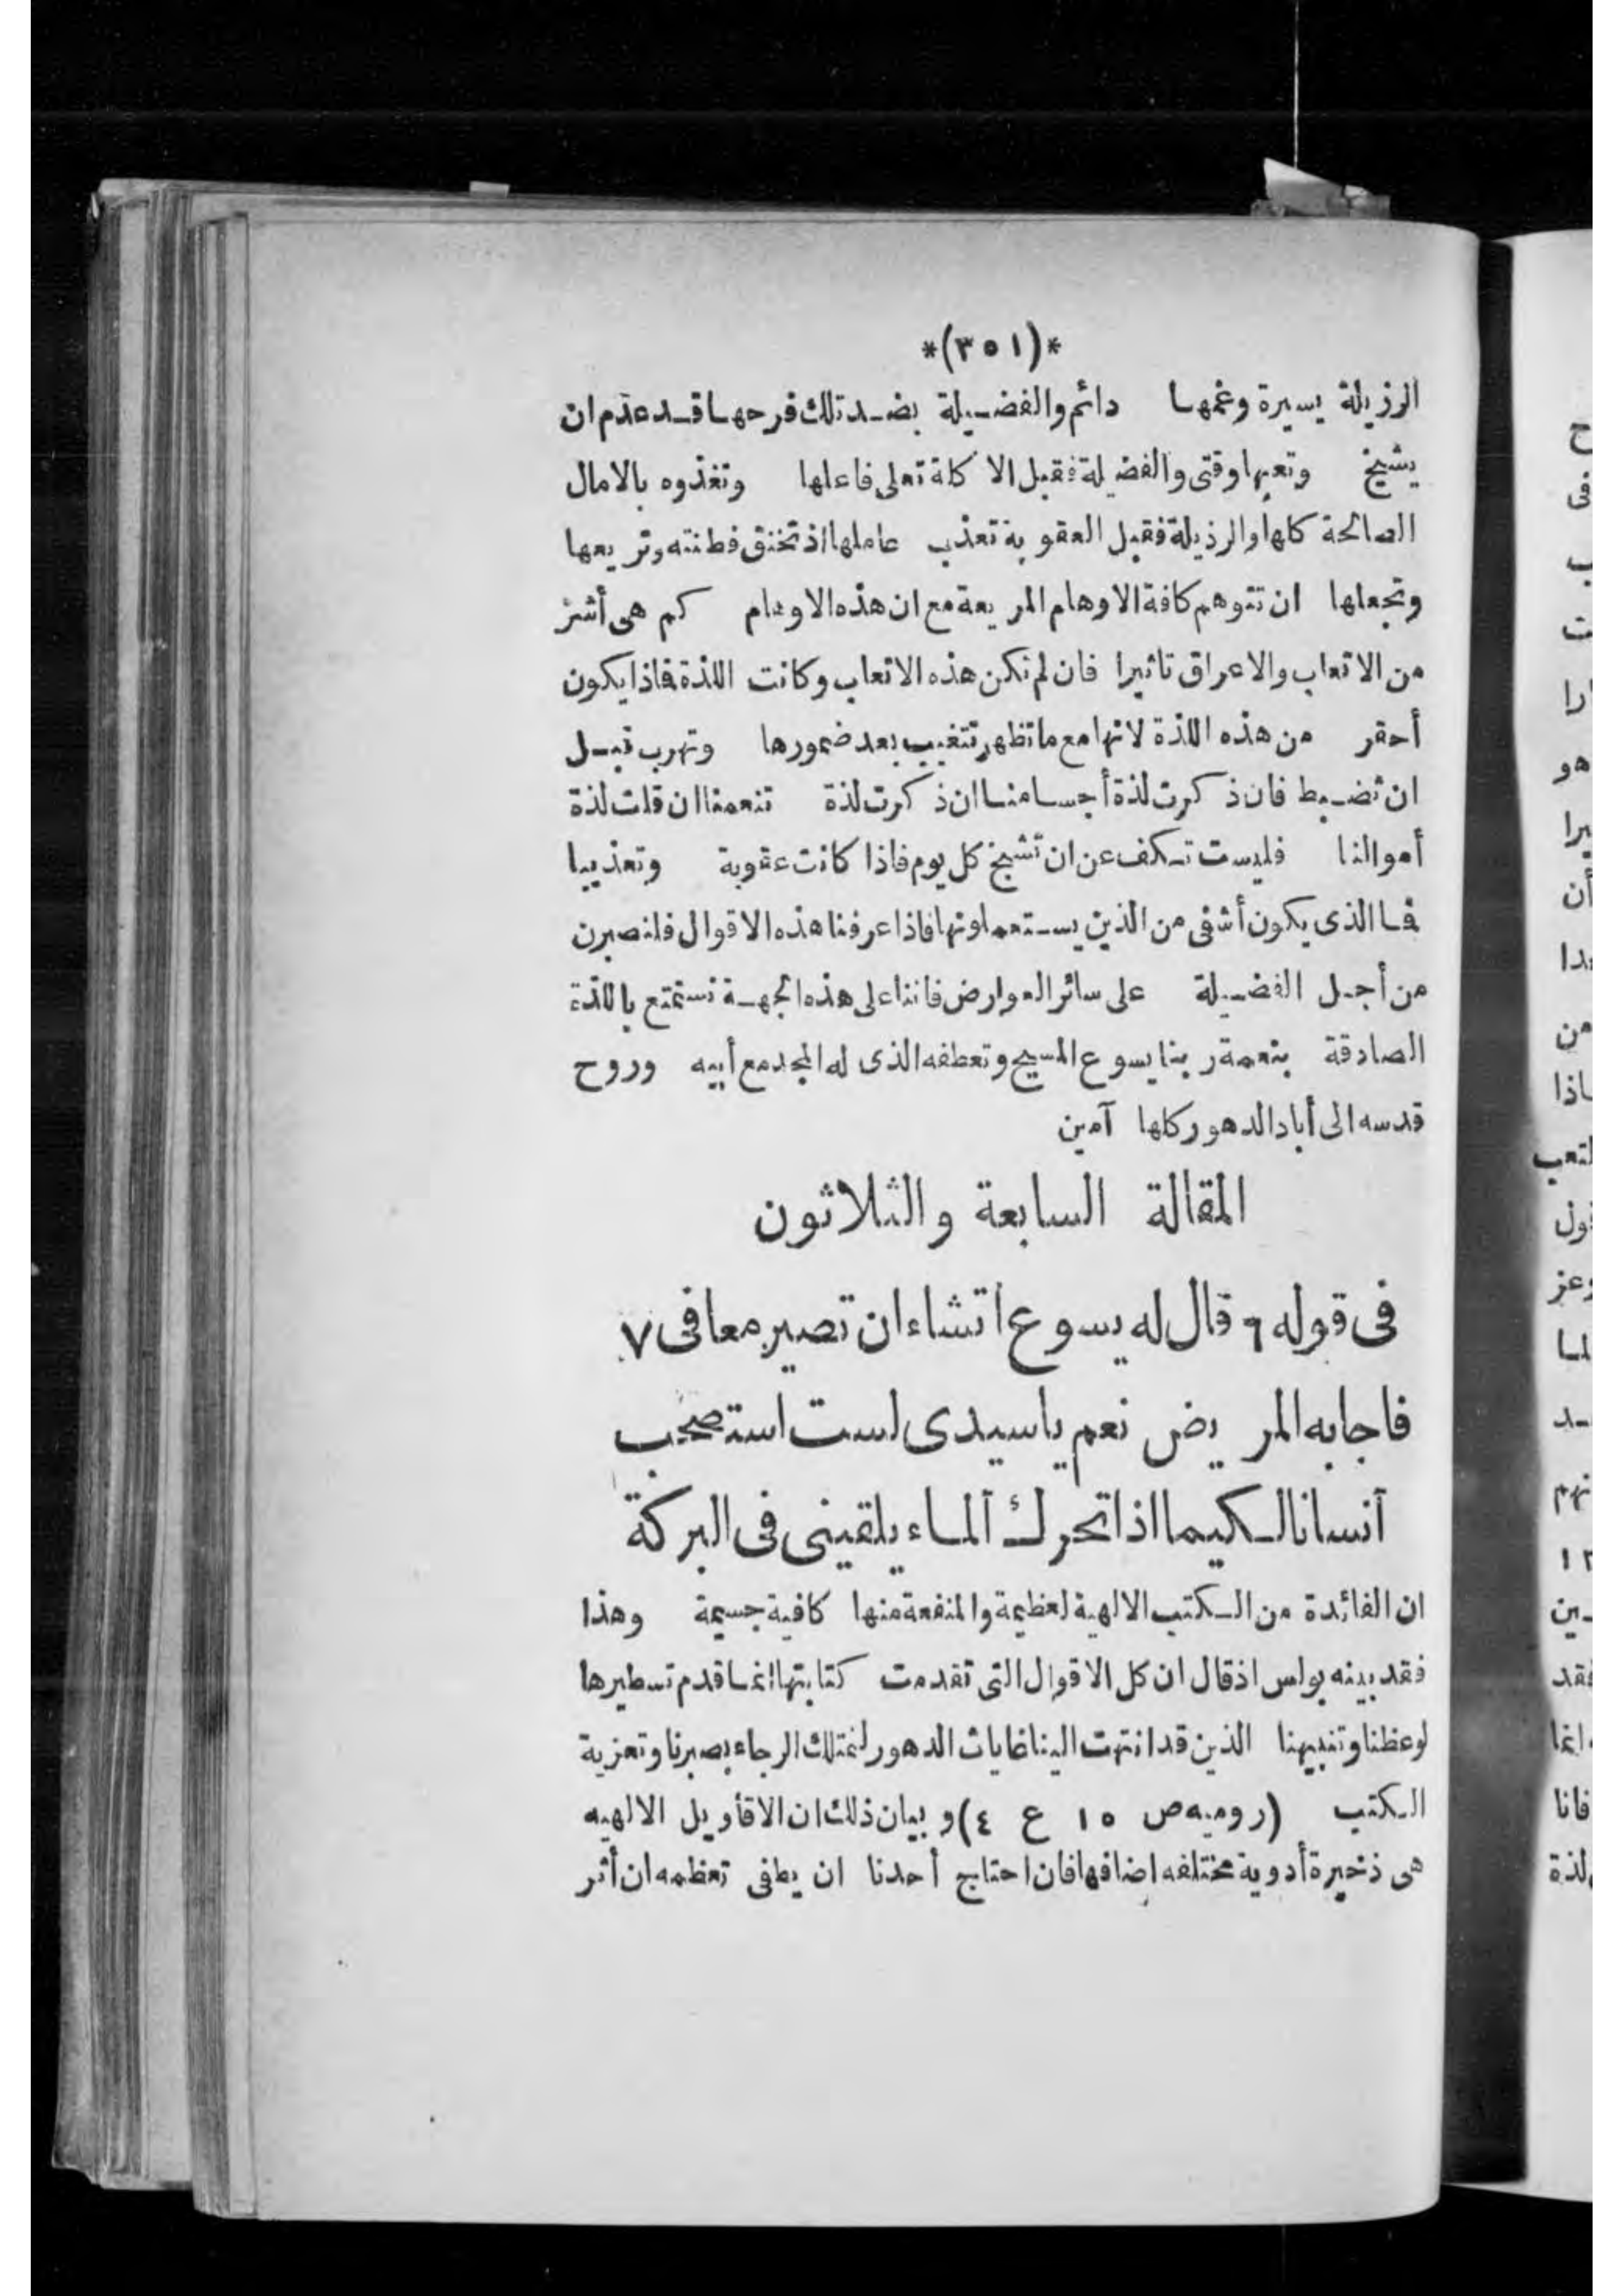 *(٣٥١)*
الرزيلة يسيرة وغمها دائم والفضيلة بضد تلك فرحها قد عدم ان
يشيخ وتعبها وقتى والفضيلة فقبل الاكلة تعلى فاعلها وتغذوه بالامال
الصالحة كلها والرذيلة فقبل العقوبة تعذب عاملها اذ تخنق فطنته وتريعها
وتجعلها ان تتوهم كافة الاوهام المريعة مع ان هذه الاوهام كم هى أشر
من الاتعاب والاعراق تاثيرا فان لم تكن هذه الاتعاب وكانت اللذة فاذا يكون
أحقر من هذه اللذة لانها مع ما تظهر تتغيب بعد ضمورها وتهرب قبل
ان تضبط فان ذكرت لذة أجسامنا ان ذكرت لذة تنعمنا ان قلت لذة
أموالنا فليست تكف عن ان تشيخ كل يوم فاذا كانت عقوبة وتعذيبا
فما الذى يكون أشقى من الذين يستعملونها فاذا عرفنا هذه الاقوال فلنصبرن
من أجل الفضيلة على سائر العوارض فاننا على هذه الجهة نستمتع باللذة
الصادقة بنعمة ربنا يسوع المسيح وتعطفه الذى له المجد مع أبيه وروح
قدسه الى أباد الدهور كلها آمين
المقالة السابعة والثلاثون
فى قوله ٦ قال له يسوع اتشاء ان تصير معافى ٧
فاجابه المريض نعم ياسيدى لست استصحب
آنسانا لكيما اذا تحرك آلماء يلقينى فى البركة
ان الفائدة من الكتب الالهية لعظيمة والمنفعة منها كافية جسيمة وهذا
فقد بينه بولس اذ قال ان كل الاقوال التى تقدمت كتابتها انما قدم تسطيرها
لوعظنا وتنبيهنا الذين قد انتهت الينا غايات الدهور لنمتلك الرجاء بصبرنا وتعزية
الكتب (روميه ص ١٥ ع ٤) وبيان ذلك ان الاقأويل الالهيه
هى ذخيرة أدوية مختلفه اضافها فان احتاج أحدنا ان يطفى تعظمه ان أثر
ح
فى
ب
ت
ارا
هو
يرا
أن
بدا
من
ماذا
لتعب
فول
وعز
لما
ـد
نهم
١٢
ـين
فقد
انما
فانا
لذة